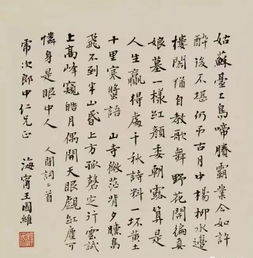 姑蘇臺上烏啼賸霸業今如許
醉後不堪仍弔古月中楊柳水邊
樓閣猶自教歌舞野花開徧真
娘墓一樣紅顏委朝露算是
人生贏得處千秋詩料一坏黃土
十里寒螿語山寺微茫背夕曛鳥
飛不到半山昏上方孤磬定行雲試
上高峰窺皓月偶開天眼覷紅塵可
憐身是眼中人 人間詞二首
次郎中仁兄正 海寧王國維